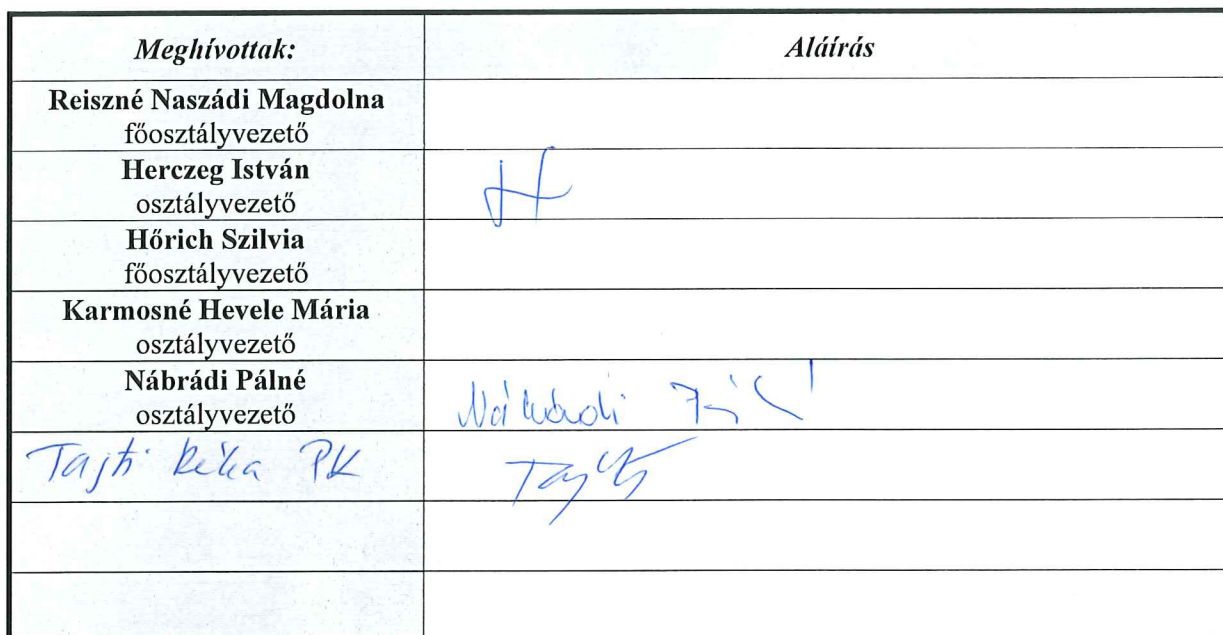 Meghívottak: Aláírás
Reiszné Naszádi Magdolna
főosztályvezető
Herczeg István
osztályvezető
H
Hőrich Szilvia
főosztályvezető
Karmosné Hevele Mária
osztályvezető
Nábrádi Pálné
osztályvezető
Nábrádi
Tajti Réka PK